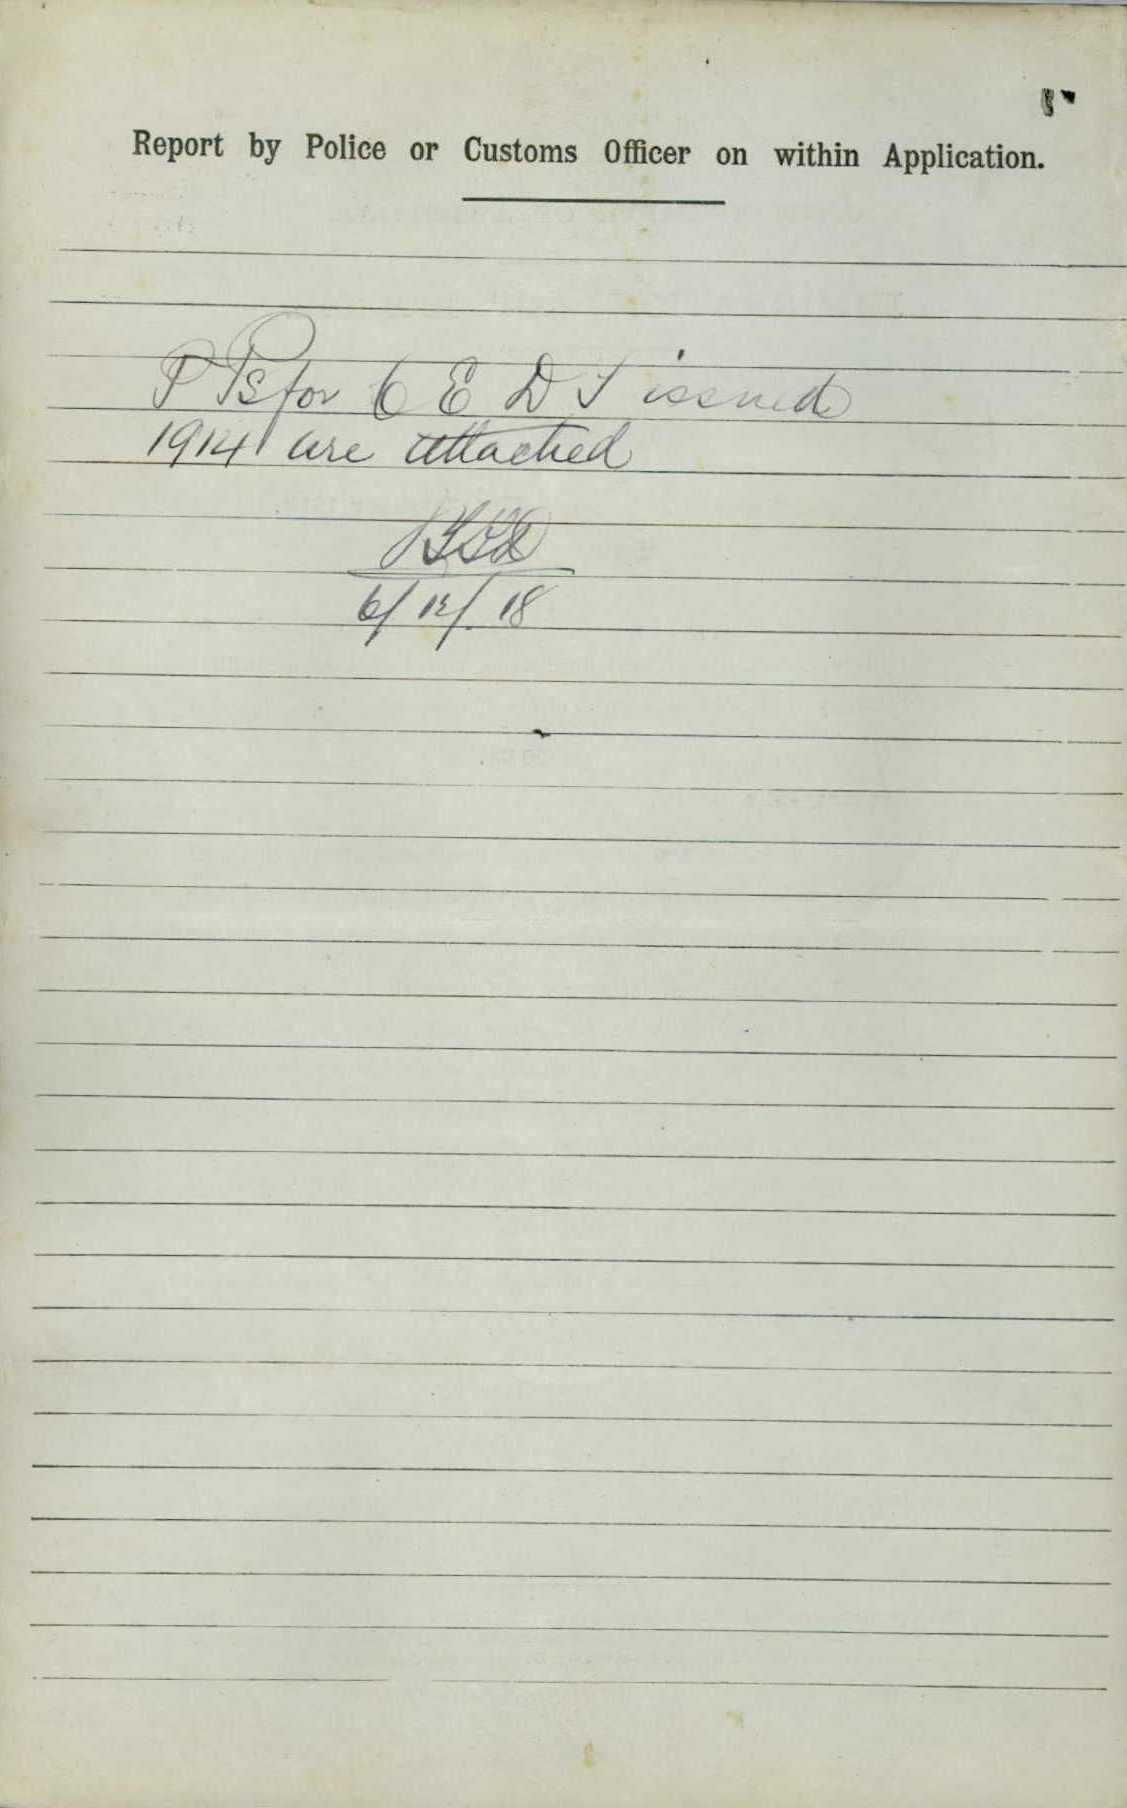 Report by Police or Customs Officer on within Application.
P Ps for C E D T issued
1914 are attached
6/12/18